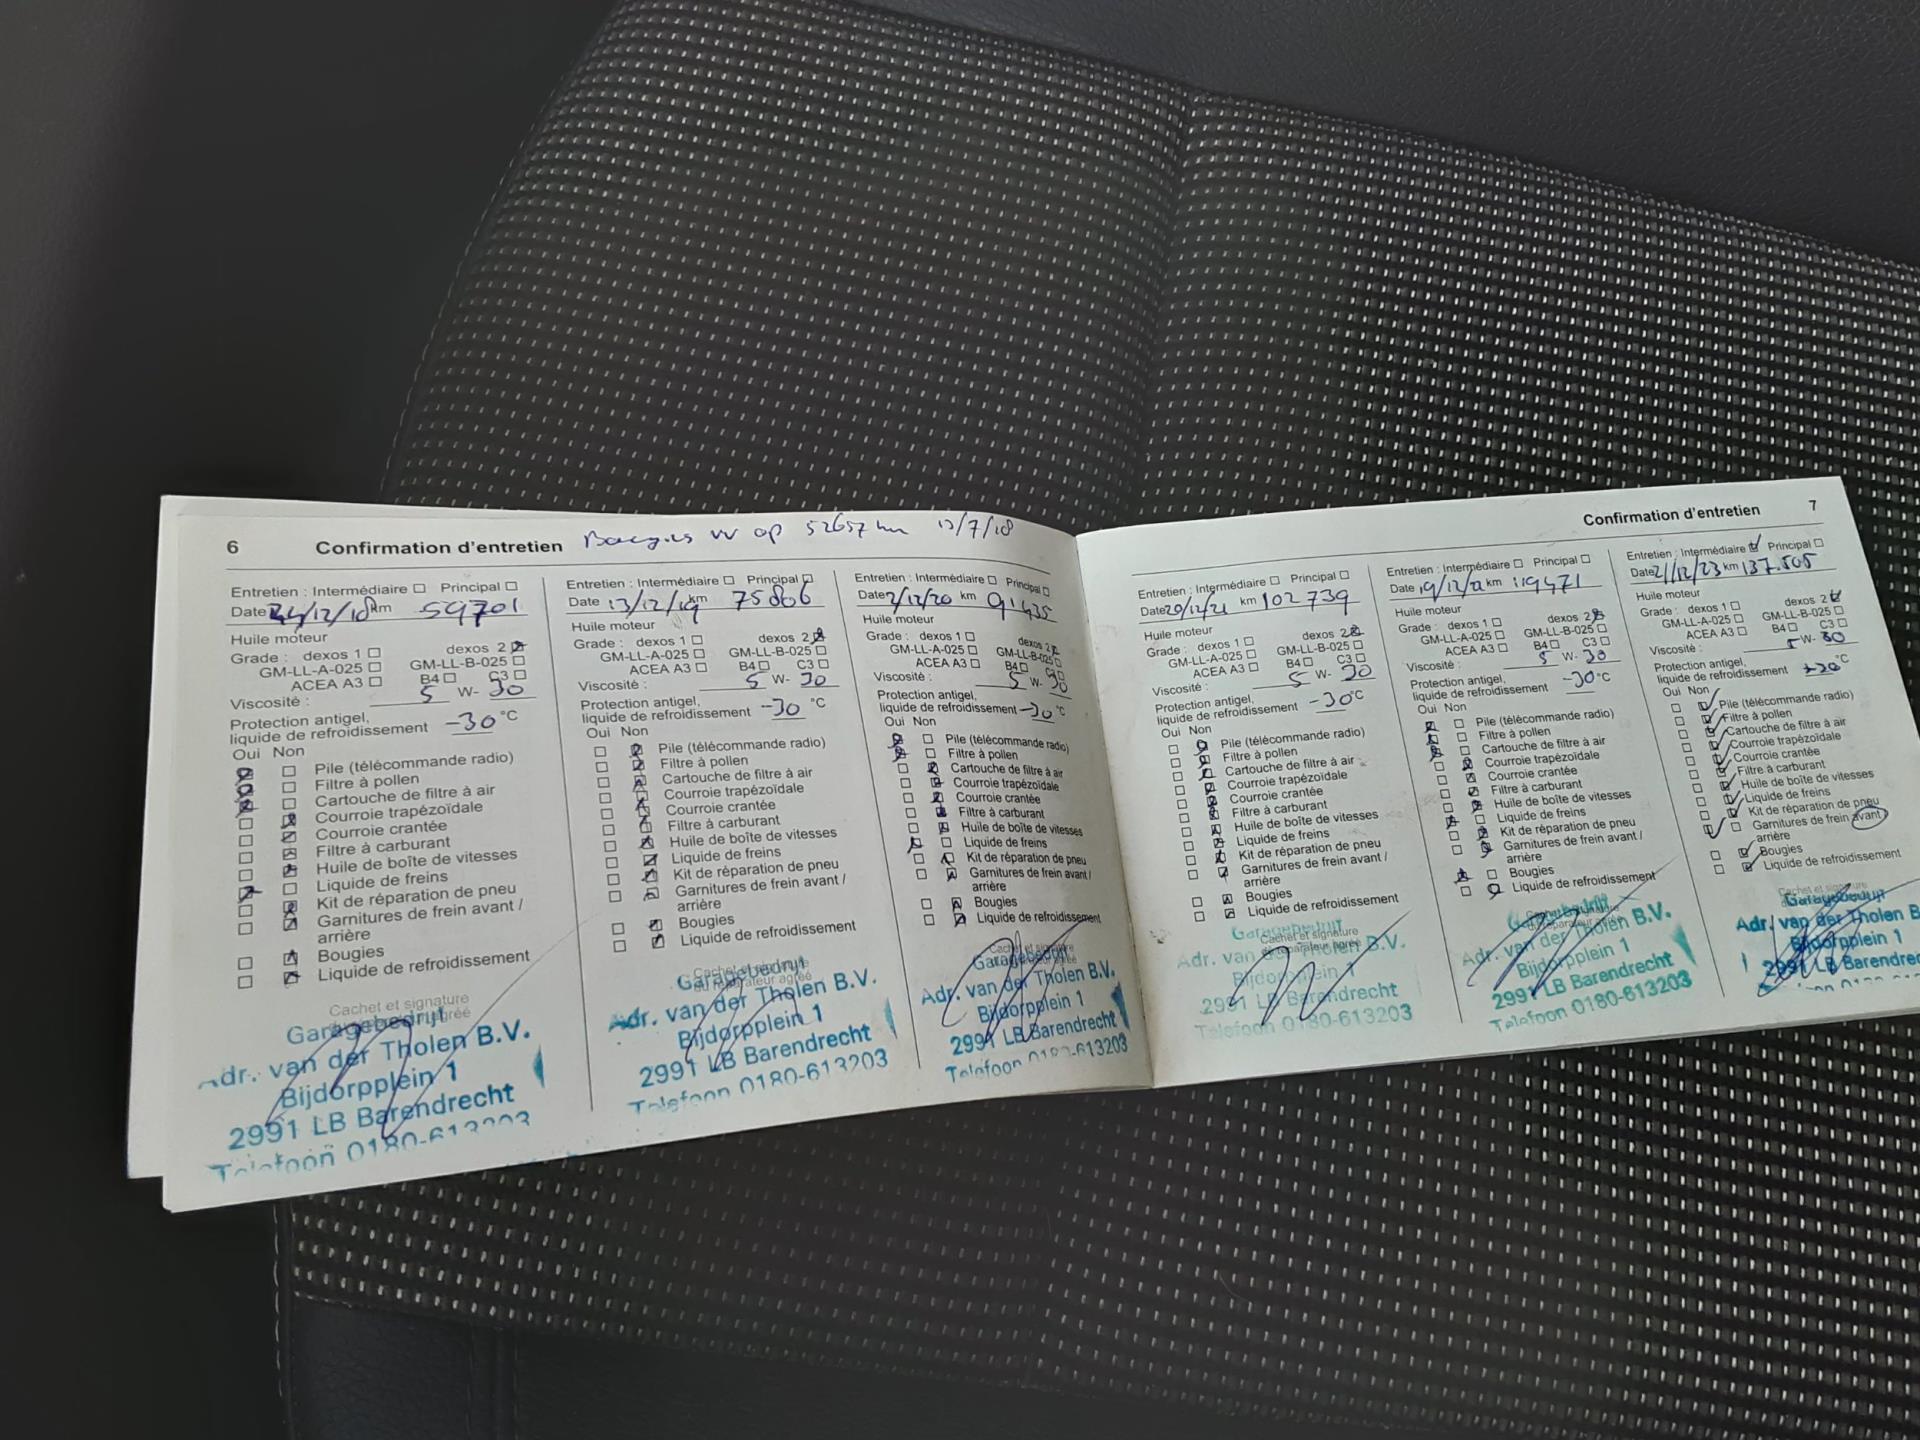 6 Confirmation d'entretien Bougies vv op 52657 km 13/7/18
Entretien : Intermédiaire ☐ Principal ☐
Date 24/12/18 km 59701
Huile moteur
Grade : dexos 1 ☐ dexos 2 ☒
GM-LL-A-025 ☐ GM-LL-B-025 ☐
ACEA A3 ☐ B4 ☐ C3 ☐
Viscosité : 5 W- 30
Protection antigel,
liquide de refroidissement -30 °C
Oui Non
Pile (télécommande radio)
Filtre à pollen
Cartouche de filtre à air
Courroie trapézoïdale
Courroie crantée
Filtre à carburant
Huile de boîte de vitesses
Liquide de freins
Kit de réparation de pneu
Garnitures de frein avant /
arrière
Bougies
Liquide de refroidissement
Cachet et signature
Garagebedrijf
Adr. van der Tholen B.V.
Bijdorpplein 1
2991 LB Barendrecht
Telefoon 0180-613203
Entretien : Intermédiaire ☐ Principal ☐
Date 13/12/19 km 75806
Huile moteur
Grade : dexos 1 ☐ dexos 2 ☒
GM-LL-A-025 ☐ GM-LL-B-025 ☐
ACEA A3 ☐ B4 ☐ C3 ☐
Viscosité : 5 W- 30
Protection antigel,
liquide de refroidissement -30 °C
Oui Non
Pile (télécommande radio)
Filtre à pollen
Cartouche de filtre à air
Courroie trapézoïdale
Courroie crantée
Filtre à carburant
Huile de boîte de vitesses
Liquide de freins
Kit de réparation de pneu
Garnitures de frein avant /
arrière
Bougies
Liquide de refroidissement
Cachet et signature
du réparateur agréé
Garagebedrijf
Adr. van der Tholen B.V.
Bijdorpplein 1
2991 LB Barendrecht
Telefoon 0180-613203
Entretien : Intermédiaire ☐ Principal ☐
Date 2/12/20 km 91435
Huile moteur
Grade : dexos 1 ☐ dexos 2 ☒
GM-LL-A-025 ☐ GM-LL-B-025 ☐
ACEA A3 ☐ B4 ☐ C3 ☐
Viscosité : 5 W- 30
Protection antigel,
liquide de refroidissement -30 °C
Oui Non
Pile (télécommande radio)
Filtre à pollen
Cartouche de filtre à air
Courroie trapézoïdale
Courroie crantée
Filtre à carburant
Huile de boîte de vitesses
Liquide de freins
Kit de réparation de pneu
Garnitures de frein avant /
arrière
Bougies
Liquide de refroidissement
Cachet et signature
Garagebedrijf
Adr. van der Tholen B.V.
Bijdorpplein 1
2991 LB Barendrecht
Telefoon 0180-613203
Confirmation d'entretien 7
Entretien : Intermédiaire ☐ Principal ☐
Date 20/12/21 km 102739
Huile moteur
Grade : dexos 1 ☐ dexos 2 ☒
GM-LL-A-025 ☐ GM-LL-B-025 ☐
ACEA A3 ☐ B4 ☐ C3 ☐
Viscosité : 5 W- 30
Protection antigel,
liquide de refroidissement -30 °C
Oui Non
Pile (télécommande radio)
Filtre à pollen
Cartouche de filtre à air
Courroie trapézoïdale
Courroie crantée
Filtre à carburant
Huile de boîte de vitesses
Liquide de freins
Kit de réparation de pneu
Garnitures de frein avant /
arrière
Bougies
Liquide de refroidissement
Cachet et signature
du réparateur agréé
Garagebedrijf
Adr. van der Tholen B.V.
Bijdorpplein 1
2991 LB Barendrecht
Telefoon 0180-613203
Entretien : Intermédiaire ☐ Principal ☐
Date 19/12/22 km 119471
Huile moteur
Grade : dexos 1 ☐ dexos 2 ☒
GM-LL-A-025 ☐ GM-LL-B-025 ☐
ACEA A3 ☐ B4 ☐ C3 ☐
Viscosité : 5 W- 30
Protection antigel,
liquide de refroidissement -30 °C
Oui Non
Pile (télécommande radio)
Filtre à pollen
Cartouche de filtre à air
Courroie trapézoïdale
Courroie crantée
Filtre à carburant
Huile de boîte de vitesses
Liquide de freins
Kit de réparation de pneu
Garnitures de frein avant /
arrière
Bougies
Liquide de refroidissement
Garagebedrijf
Adr. van der Tholen B.V.
Bijdorpplein 1
2991 LB Barendrecht
Telefoon 0180-613203
Entretien : Intermédiaire ☑ Principal ☐
Date 21/12/23 km 137.505
Huile moteur
Grade : dexos 1 ☐ dexos 2 ☑
GM-LL-A-025 ☐ GM-LL-B-025 ☐
ACEA A3 ☐ B4 ☐ C3 ☐
Viscosité : 5 W- 30
Protection antigel,
liquide de refroidissement -30 °C
Oui Non
Pile (télécommande radio)
Filtre à pollen
Cartouche de filtre à air
Courroie trapézoïdale
Courroie crantée
Filtre à carburant
Huile de boîte de vitesses
Liquide de freins
Kit de réparation de pneu
Garnitures de frein avant /
arrière
Bougies
Liquide de refroidissement
Cachet et signature
Garagebedrijf
Adr. van der Tholen B
Bijdorpplein 1
2991 LB Barendrec